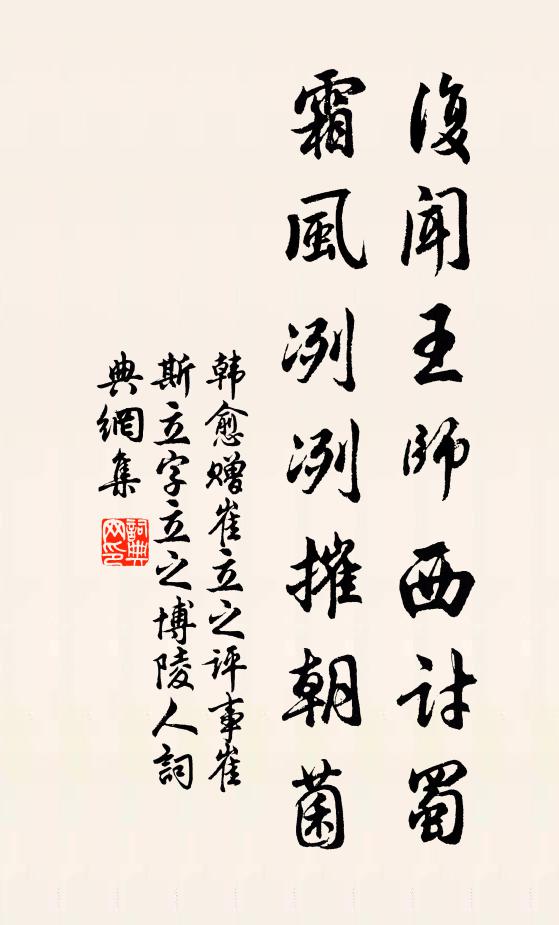 復聞王師西討蜀
霜風冽冽摧朝菌
韩愈赠崔立之评事崔
斯立字立之博陵人詞
典網集
詞典网印